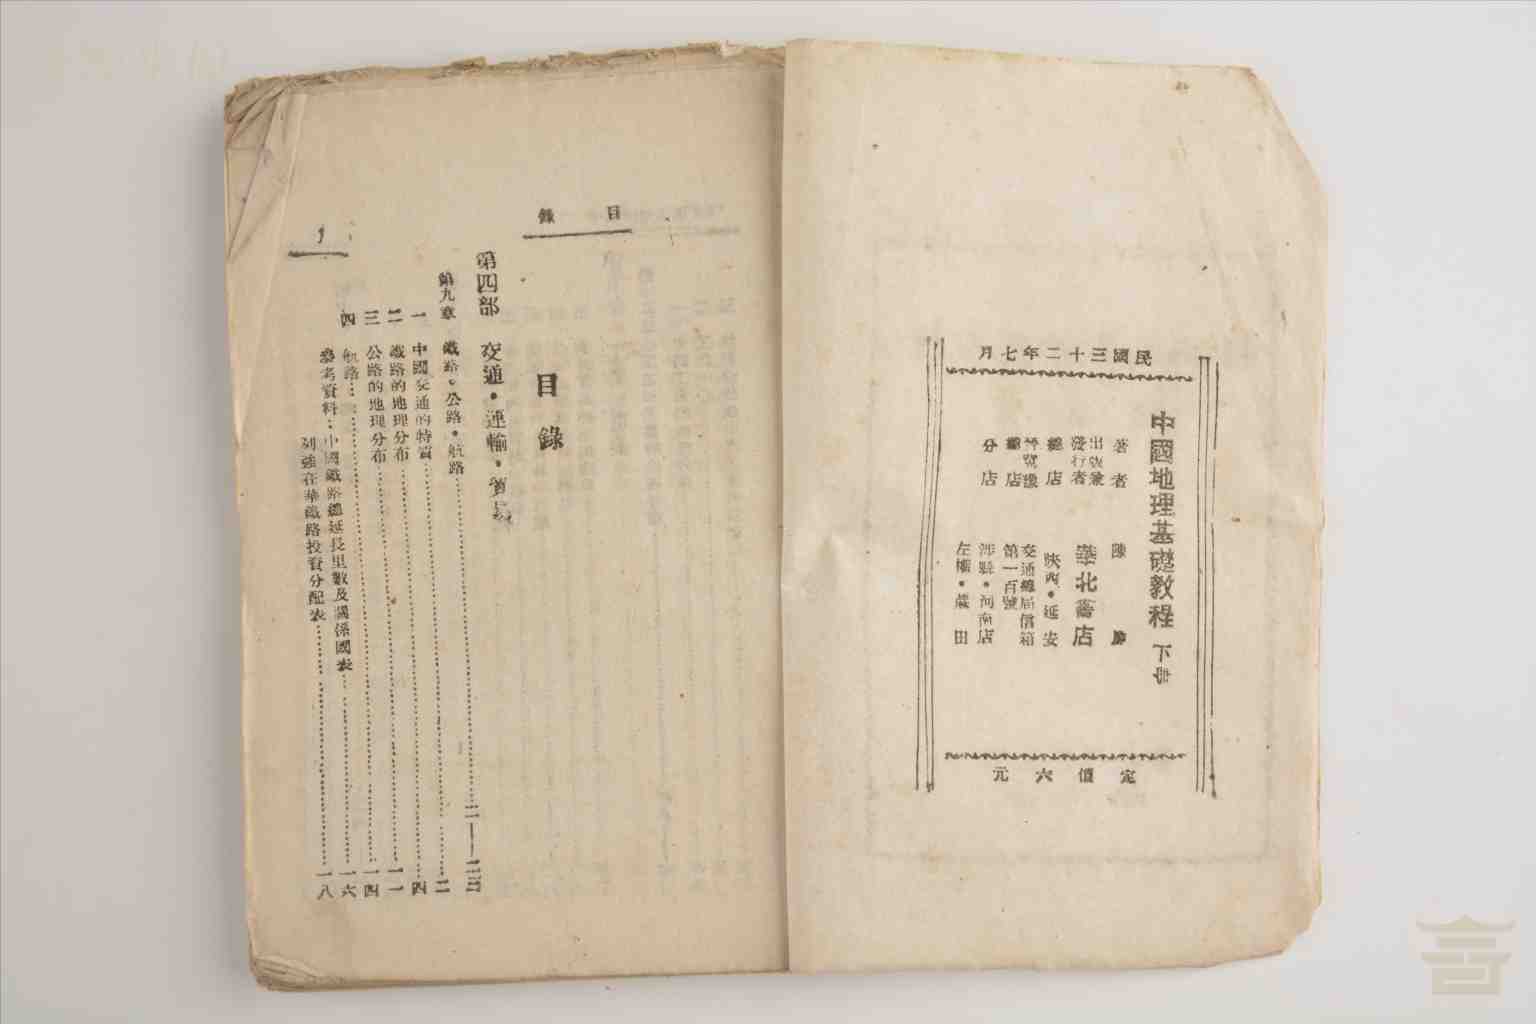 民國三十二年七月
中國地理基礎敎程 下册
著者 陳
出版兼發行者 華北書店
總店 陝西·延安
晉冀豫總店 交通總局信箱第一百號
分店 涉縣·河南店
左權·
定價六元
目錄
目錄
第四部 交通·運輸·貿易
第九章 鐵路·公路·航路……二——二三
一 中國交通的特質……二
二 鐵路的地理分布……四
三 公路的地理分布……一一
四 航路……一四
參考資料:中國鐵路總延長里數及關係國表……一六
列強在華鐵路投資分配表……一八